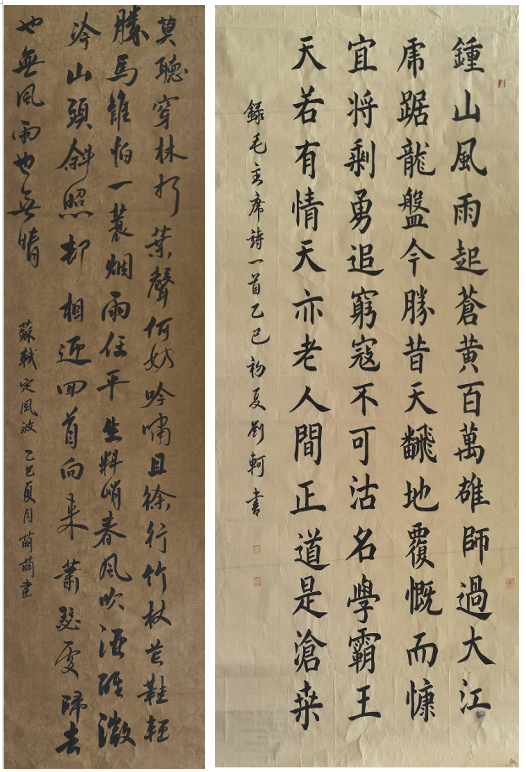 莫聽穿林打葉聲何妨吟嘯且徐行竹杖芒鞋輕
勝馬誰怕一蓑烟雨任平生料峭春風吹酒醒微
冷山頭斜照却相迎回首向來蕭瑟處歸去
也無風雨也無晴
蘇軾定風波 乙巳夏月萌萌書
鍾山風雨起蒼黃百萬雄師過大江
虎踞龍盤今勝昔天飜地覆慨而慷
宜将剩勇追窮寇不可沽名學霸王
天若有情天亦老人間正道是滄桒
錄毛主席詩一首乙巳初夏劉軻書